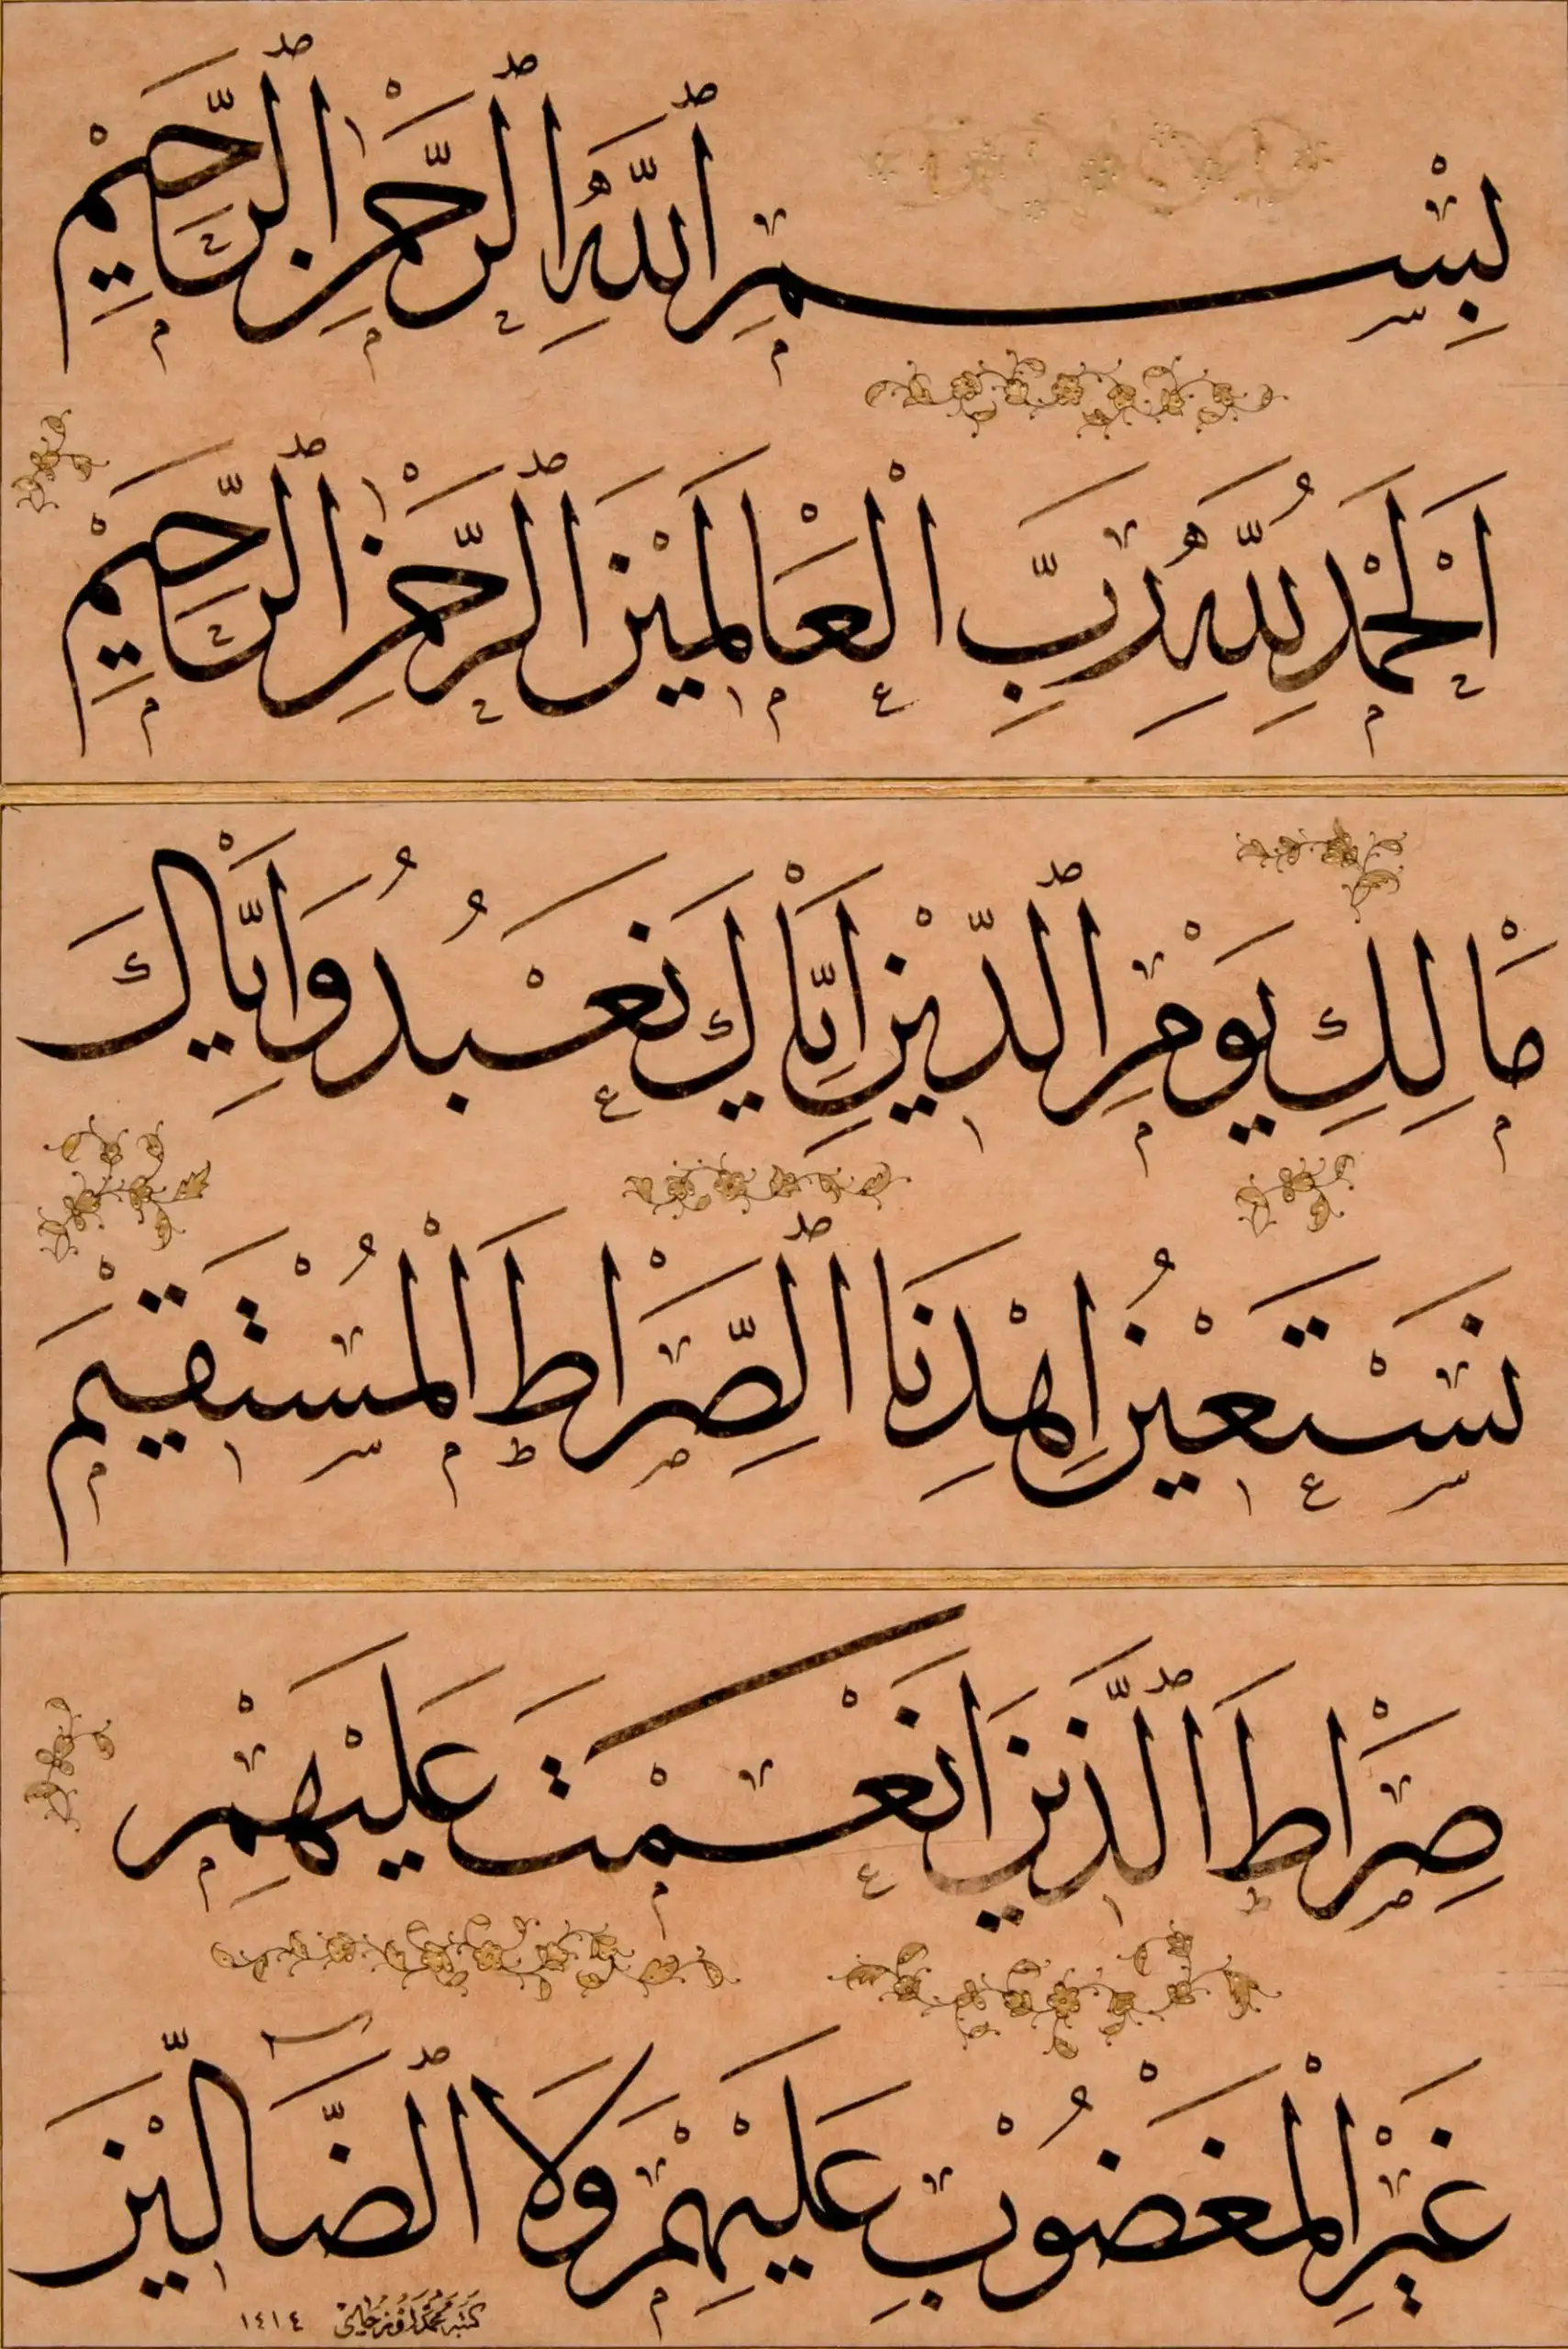 بِسْمِ ٱللّٰهِ ٱلرَّحْمٰنِ ٱلرَّحِيْمِ
اَلْحَمْدُ لِلّٰهِ رَبِّ الْعَالَمِيْنَ ٱلرَّحْمٰنِ ٱلرَّحِيْمِ
مَاْلِكِ يَوْمِ ٱلدِّيْنِ اِيَّاْكَ نَعْبُدُ وَاِيَّاْكَ
نَسْتَعِيْنُ اِهْدِنَا ٱلصِّرَاْطَ الْمُسْتَقِيْمَ
صِرَاْطَ ٱلَّذِيْنَ اَنْعَمْتَ عَلَيْهِمْ
غَيْرِ الْمَغْضُوْبِ عَلَيْهِمْ وَلَا ٱلضَّآلِّيْنَ
كتبه محمد ١٤١٤